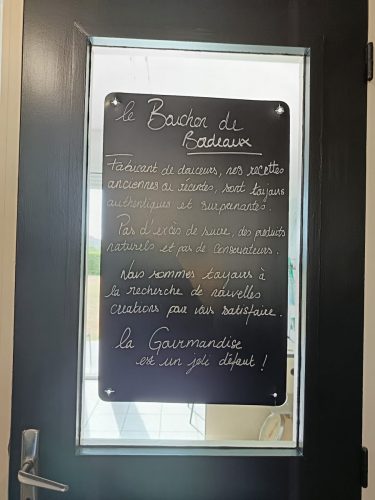 le Bouchon de
Bordeaux
Fabricant de douceurs, nos recettes
anciennes ou récentes, sont toujours
authentiques et surprenantes.
Pas d'excès de sucre, des produits
naturels et pas de conservateurs.
Nous sommes toujours à
la recherche de nouvelles
créations pour vous satisfaire.
la Gourmandise
est un joli défaut !